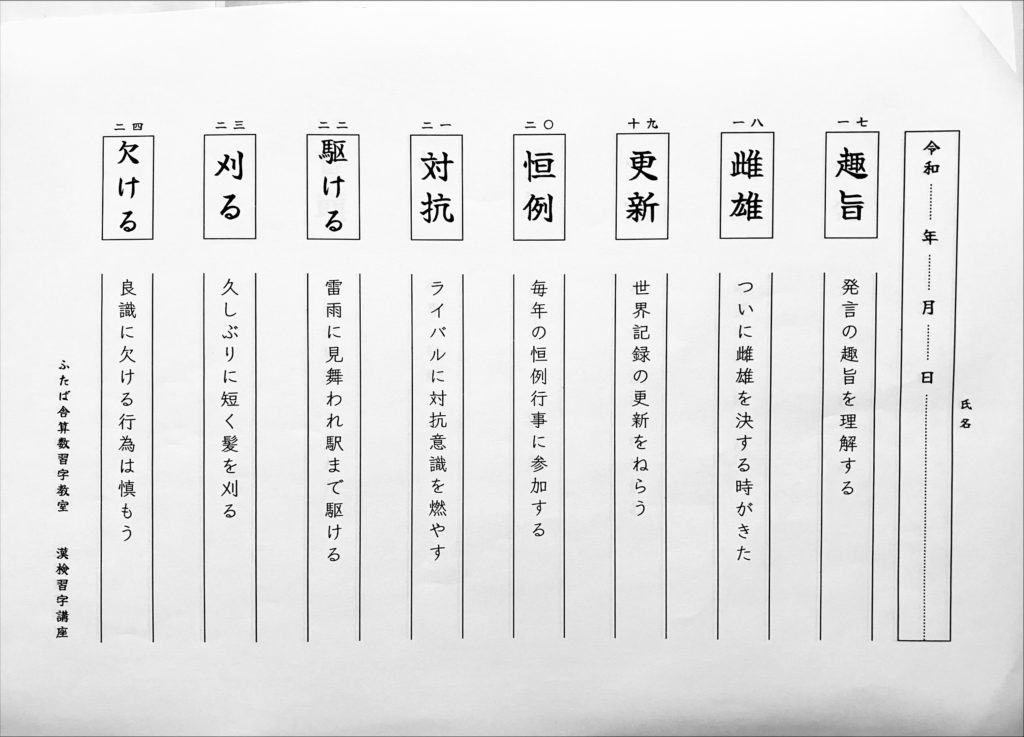 氏名
令和 年 月 日
一七
趣旨
発言の趣旨を理解する
一八
雌雄
ついに雌雄を決する時がきた
十九
更新
世界記録の更新をねらう
二〇
恒例
毎年の恒例行事に参加する
二一
対抗
ライバルに対抗意識を燃やす
二二
駆ける
雷雨に見舞われ駅まで駆ける
二三
刈る
久しぶりに短く髪を刈る
二四
欠ける
良識に欠ける行為は慎もう
ふたば舎算数習字教室 漢検習字講座